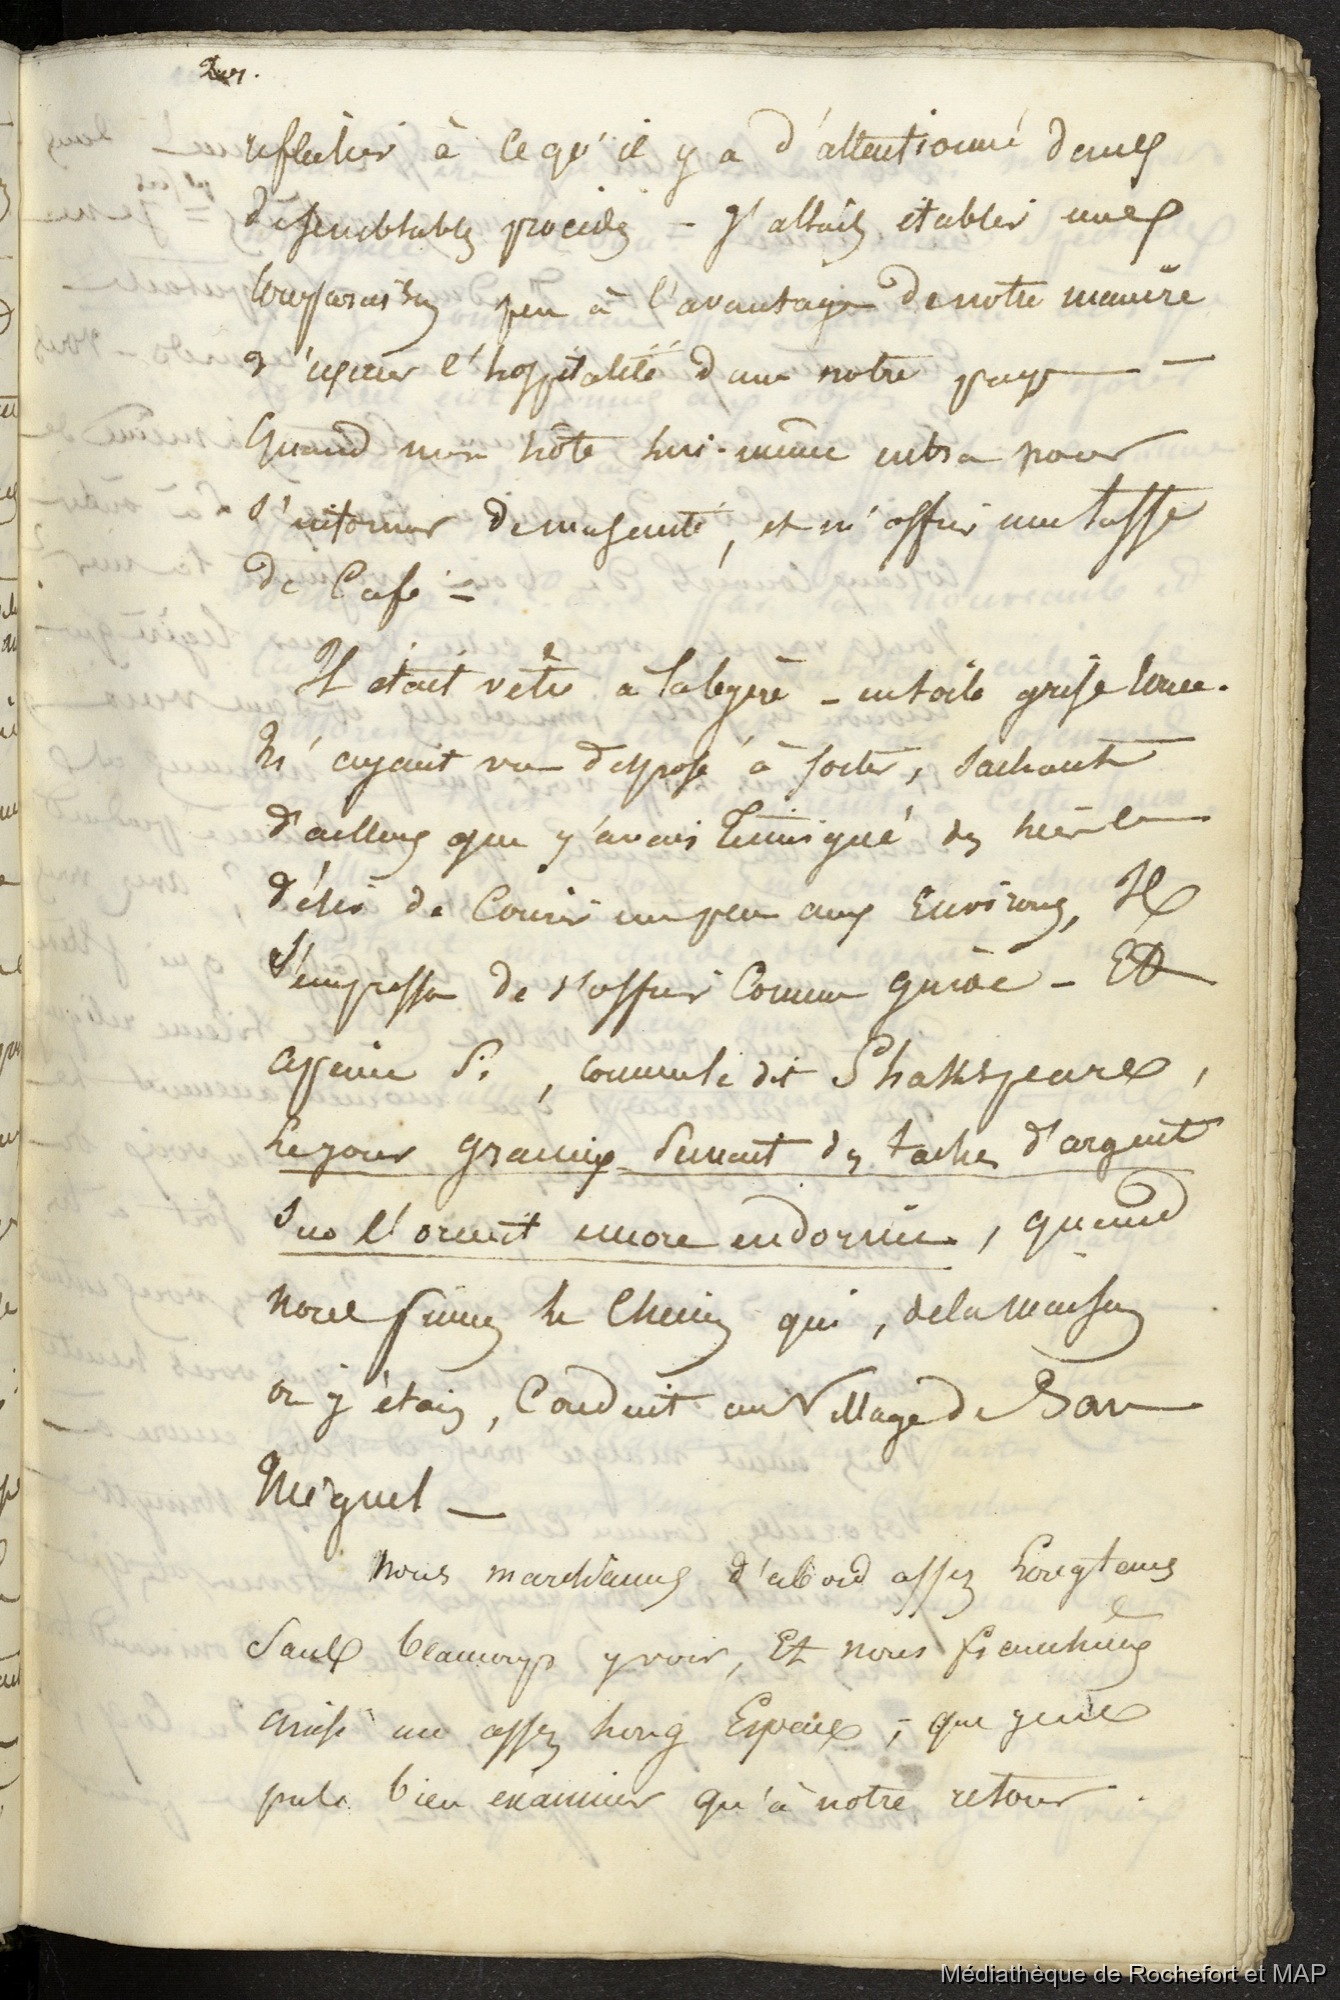 réflechir à ce qu'il y a d'attentionné dans
de semblables procédés – J'allais etablir une
Comparaison peu à l'avantage de notre manière
d'exercer l'hospitalité dans notre pays —
Quand mon hôte lui-même entra pour
s'informer de ma santé, et m'offrir une tasse
de Café =
Il était vêtu a la légère – en toile grise
M'ayant vu disposé à sortir, sachant
d'ailleurs que j'avais témoigné dès hier le
désir de Courir un peu aux Environs, Il
s'empressa de s'offrir Comme guide – Et
apeine si, comme le dit Shakspeare,
le jour semait des taches d'argent
sur l'orient encore endormi, quand
nous primes le Chemin qui, de la maison
ou j'étais, Conduit au Village de San
Miguel —
Nous marchâmes d'abord assez longtems
Sans beaucoup y voir, Et nous franchîmes
ainsi un assez long Espace, – que je ne
pus bien examiner qu'à notre retour.
Médiathèque de Rochefort et MAP